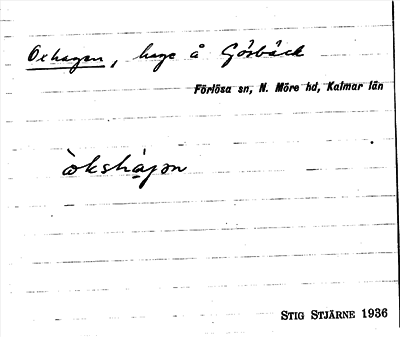 Oxhagen, hage å Görbäck
Förlösa sn, N. Möre hd, Kalmar län
òkshàgən
STIG STJÄRNE 1936